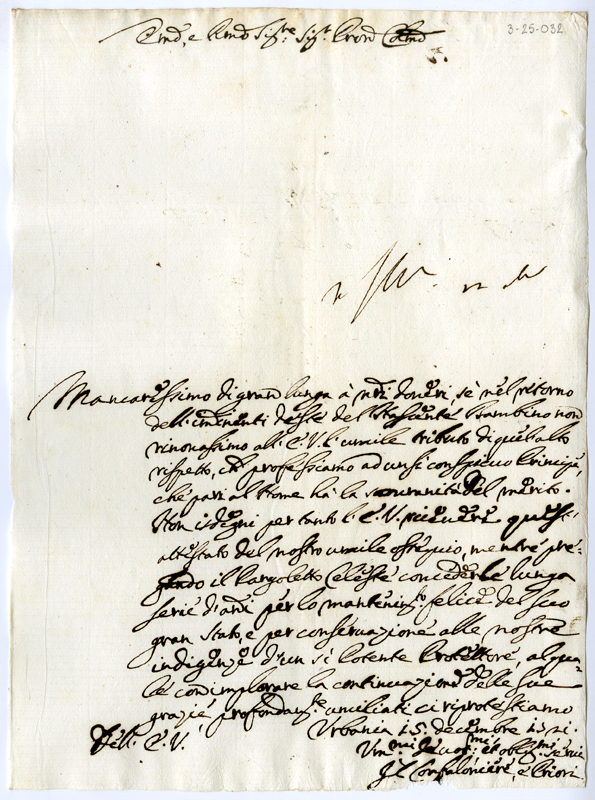 3-25-032
Em̃o, e Rmõ Sig.re Sig.r Pron̄ Colmõ
Mancaressimo di gran lunga à nrĩ doueri, se nel ritorno
dell'imminenti feste del Nascente Bambino non
rinouassimo all'E.V. l'umile tributo di quell'alto
rispetto, che professiamo ad un sì conspicuo Principe,
che pari al Nome hà la souranità del merito.
Non isdegni per tanto l'E.V. riceuere quest'
attestato del nostro umile ossequio, mentre pre-
gando il Pargoletto Celeste concederle lunga
serie d'anni per lo mantenim.to felice del suo
gran Stato, e per conseruazione alle nostre
indigenze d'un sì Potente Protettore, al qua-
le con implorare la continuazione delle sue
grazie, profondam.te umiliati ci riprotestiamo
Dell'E.V.
Urbania 15. decembre
Um.mi deuot.mi et oblig.mi serui
Il Confaloniere, e Priori